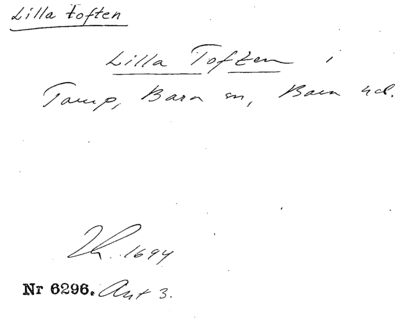 Lilla toften
Lilla Toften i
Torup, Bara sn, Bara hd.
Lh. 1694
Nr 6296. Ant 3.